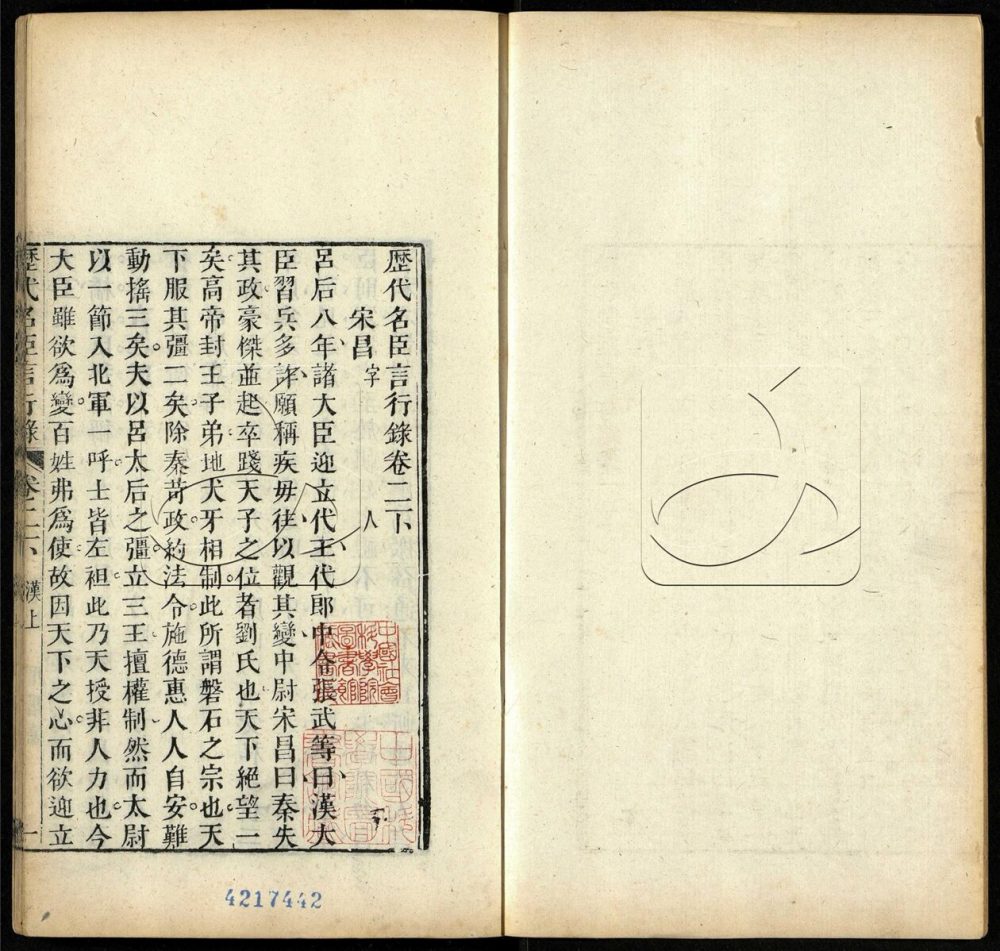 歷代名臣言行錄卷二下
宋昌字　　　人
呂后八年諸大臣迎立代王代郎中令張武等曰漢大
臣習兵多詐願稱疾毋往以觀其變中尉宋昌曰秦失
其政豪傑並起卒踐天子之位者劉氏也天下絕望一
矣高帝封王子弟地犬牙相制此所謂磐石之宗也天
下服其彊二矣除秦苛政約法令施德惠人人自安難
動搖三矣夫以呂太后之彊立三王擅權制然而太尉
以一節入北軍一呼士皆左袒此乃天授非人力也今
大臣雖欲為變百姓弗為使故因天下之心而欲迎立
歷代名臣言行錄　卷二下　漢上　一
中國社會
科學院
圖書館
4217442